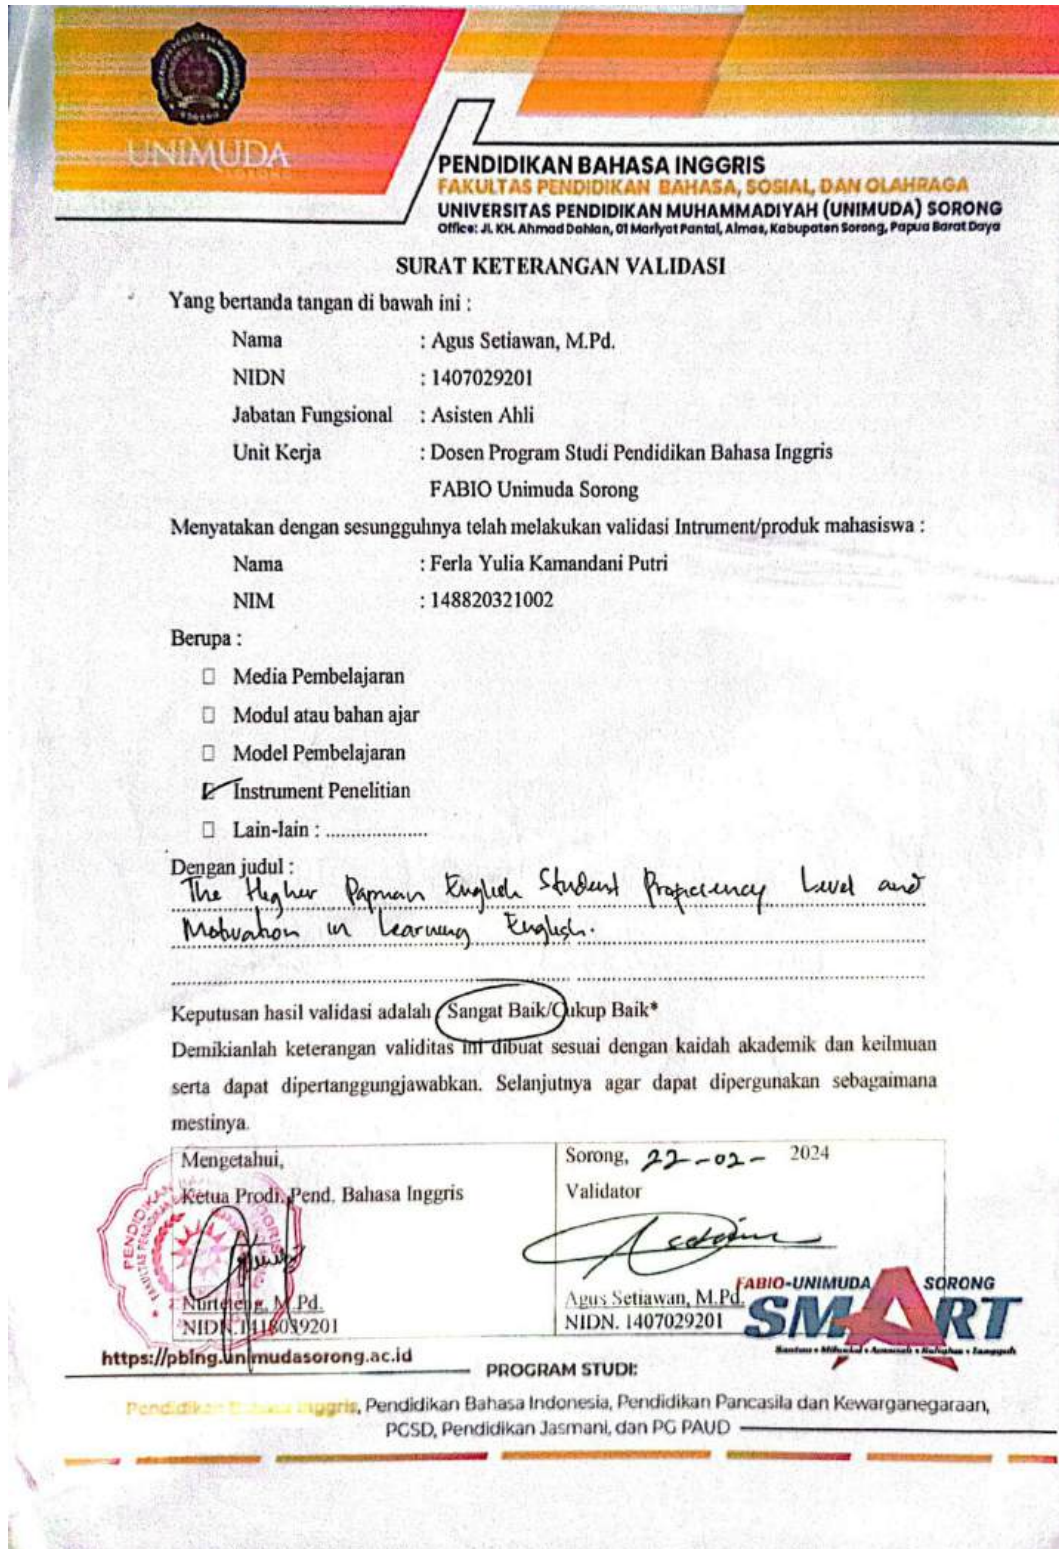 UNIMUDA
SORONG
PENDIDIKAN BAHASA INGGRIS
FAKULTAS PENDIDIKAN BAHASA, SOSIAL, DAN OLAHRAGA
UNIVERSITAS PENDIDIKAN MUHAMMADIYAH (UNIMUDA) SORONG
Office: Jl. KH. Ahmad Dahlan, 01 Mariyat Pantai, Aimas, Kabupaten Sorong, Papua Barat Daya
SURAT KETERANGAN VALIDASI
Yang bertanda tangan di bawah ini :
Nama : Agus Setiawan, M.Pd.
NIDN : 1407029201
Jabatan Fungsional : Asisten Ahli
Unit Kerja : Dosen Program Studi Pendidikan Bahasa Inggris
FABIO Unimuda Sorong
Menyatakan dengan sesungguhnya telah melakukan validasi Intrument/produk mahasiswa :
Nama : Ferla Yulia Kamandani Putri
NIM : 148820321002
Berupa :
Media Pembelajaran
Modul atau bahan ajar
Model Pembelajaran
Instrument Penelitian
Lain-lain : ....................
Dengan judul :
The Higher Papuan English Student Proficiency Level and
Motivation in Learning English.
Keputusan hasil validasi adalah Sangat Baik/Cukup Baik*
Demikianlah keterangan validitas ini dibuat sesuai dengan kaidah akademik dan keilmuan
serta dapat dipertanggungjawabkan. Selanjutnya agar dapat dipergunakan sebagaimana
mestinya.
Mengetahui,
Ketua Prodi. Pend. Bahasa Inggris
M.Pd.
Sorong, 22-02- 2024
Validator
Agus Setiawan, M.Pd.
NIDN. 1407029201
FABIO-UNIMUDA SORONG
SMART
https://pbing.unimudasorong.ac.id
PROGRAM STUDI:
Pendidikan Bahasa Inggris, Pendidikan Bahasa Indonesia, Pendidikan Pancasila dan Kewarganegaraan,
PGSD, Pendidikan Jasmani, dan PG PAUD